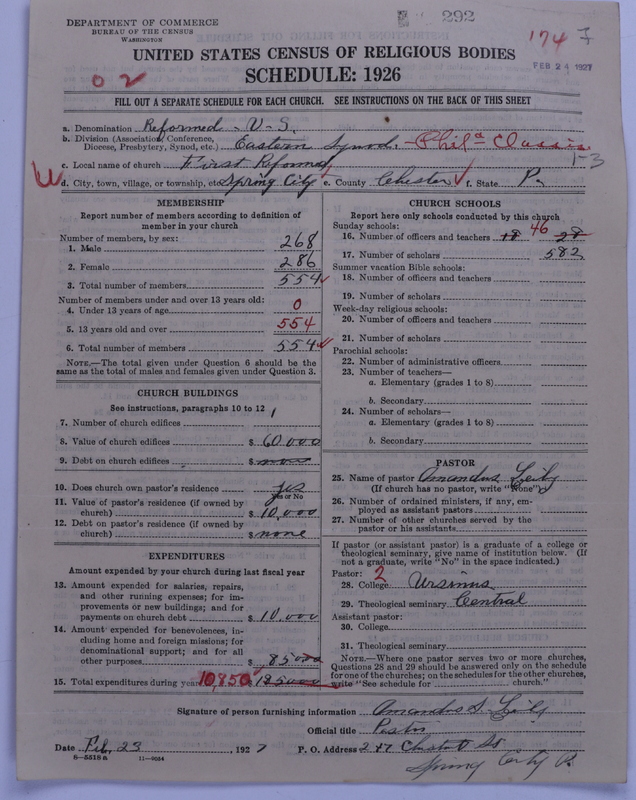 DEPARTMENT OF COMMERCE
BUREAU OF THE CENSUS
WASHINGTON
292
174
FEB 24 1927
UNITED STATES CENSUS OF RELIGIOUS BODIES
SCHEDULE: 1926
FILL OUT A SEPARATE SCHEDULE FOR EACH CHURCH. SEE INSTRUCTIONS ON THE BACK OF THIS SHEET
a. Denomination Reformed - U-S.
b. Division (Association, Conference, Diocese, Presbytery, Synod, etc.) Eastern Synod. - Phila Classis
1-3
c. Local name of church First Reformed
d. City, town, village, or township, etc. Spring City e. County Chester f. State Pa.
MEMBERSHIP
Report number of members according to definition of member in your church
Number of members, by sex:
1. Male 268
2. Female 286
3. Total number of members 554
Number of members under and over 13 years old:
4. Under 13 years of age 0
5. 13 years old and over 554
6. Total number of members 554
NOTE.—The total given under Question 6 should be the same as the total of males and females given under Question 3.
CHURCH BUILDINGS
See instructions, paragraphs 10 to 12
7. Number of church edifices 1
8. Value of church edifices $ 60,000
9. Debt on church edifices $ none
10. Does church own pastor's residence yes
Yes or No
11. Value of pastor's residence (if owned by church) $ 10,000
12. Debt on pastor's residence (if owned by church) $ none
EXPENDITURES
Amount expended by your church during last fiscal year
13. Amount expended for salaries, repairs, and other running expenses; for improvements or new buildings; and for payments on church debt $ 10,000
14. Amount expended for benevolences, including home and foreign missions; for denominational support; and for all other purposes $ 8500
15. Total expenditures during year 10,850 $
CHURCH SCHOOLS
Report here only schools conducted by this church
Sunday schools:
16. Number of officers and teachers 18 46 28
17. Number of scholars 582
Summer vacation Bible schools:
18. Number of officers and teachers
19. Number of scholars
Week-day religious schools:
20. Number of officers and teachers
21. Number of scholars
Parochial schools:
22. Number of administrative officers
23. Number of teachers—
a. Elementary (grades 1 to 8)
b. Secondary
24. Number of scholars—
a. Elementary (grades 1 to 8)
b. Secondary
PASTOR
25. Name of pastor Amandus Leiby
(If church has no pastor, write "None")
26. Number of ordained ministers, if any, employed as assistant pastors
27. Number of other churches served by the pastor or his assistants
If pastor (or assistant pastor) is a graduate of a college or theological seminary, give name of institution below. (If not a graduate, write "No" in the space indicated.)
Pastor: 2
28. College Ursinus
29. Theological seminary Central
Assistant pastor:
30. College
31. Theological seminary
NOTE.—Where one pastor serves two or more churches, Questions 28 and 29 should be answered only on the schedule for one of the churches; on the schedules for the other churches, write "See schedule for church."
Signature of person furnishing information Amandus S. Leiby
Official title Pastor
Date Feb, 23, 1927 P. O. Address 247 Chestnut St
Spring City Pa.
8-5518a 11-9054